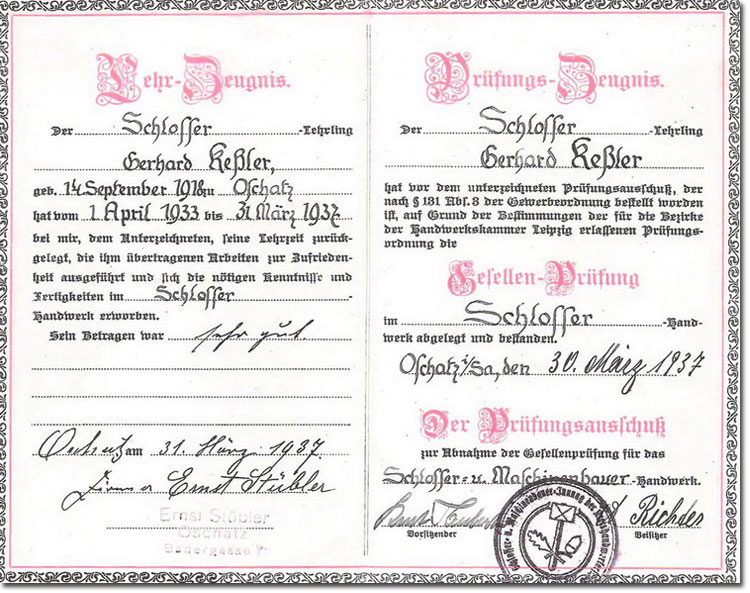 Lehr-Zeugnis.
Der Schlosser -Lehrling
Gerhard Keßler,
geb. 14 September 1918 zu Oschatz
hat vom 1. April 1933 bis 31. März 1937
bei mir, dem Unterzeichneten, seine Lehrzeit zurück-
gelegt, die ihm übertragenen Arbeiten zur Zufrieden-
heit ausgeführt und sich die nötigen Kenntnisse und
Fertigkeiten im Schlosser -
Handwerk erworben.
Sein Betragen war sehr gut
Oschatz am 31. März 1937
Firma Ernst Stübler
Ernst Stübler
Oschatz
Badergasse 7
Prüfungs-Zeugnis.
Der Schlosser -Lehrling
Gerhard Keßler
hat vor dem unterzeichneten Prüfungsausschuß, der
nach § 131 Abs. 3 der Gewerbeordnung bestellt worden
ist, auf Grund der Bestimmungen der für die Bezirke
der Handwerkskammer Leipzig erlassenen Prüfungs-
ordnung die
Gesellen-Prüfung
im Schlosser -Hand-
werk abgelegt und bestanden.
Oschatz i/Sa, den 30. März 1937
Der Prüfungsausschuß
zur Abnahme der Gesellenprüfung für das
Schlosser- u. Maschinenbauer -Handwerk.
Richter
Vorsitzender Beisitzer
Schlosser- u. Maschinenbauer-Innung